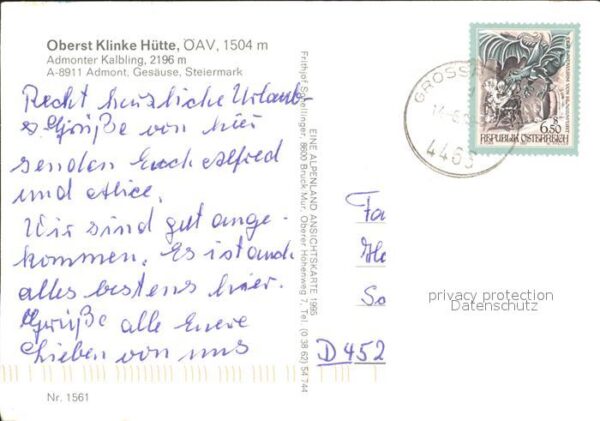 Oberst Klinke Hütte, ÖAV, 1504 m
Admonter Kalbling, 2196 m
A-8911 Admont, Gesäuse, Steiermark
Recht herzliche Urlaub-
s Grüße von hier
senden Euch Alfred
und Alice.
Wir sind gut ange-
kommen. Es ist auch
alles bestens hier.
Grüße alle Eure
Lieben von uns
Nr. 1561
EINE ALPENLAND ANSICHTSKARTE 1995
8600 Bruck/Mur, Oberer Hohenweg 7, Tel. (0 38 62) 54 744
GROSS
4463
6.50
REPUBLIK ÖSTERREICH
Fa
He
So
D 452
privacy protection
Datenschutz